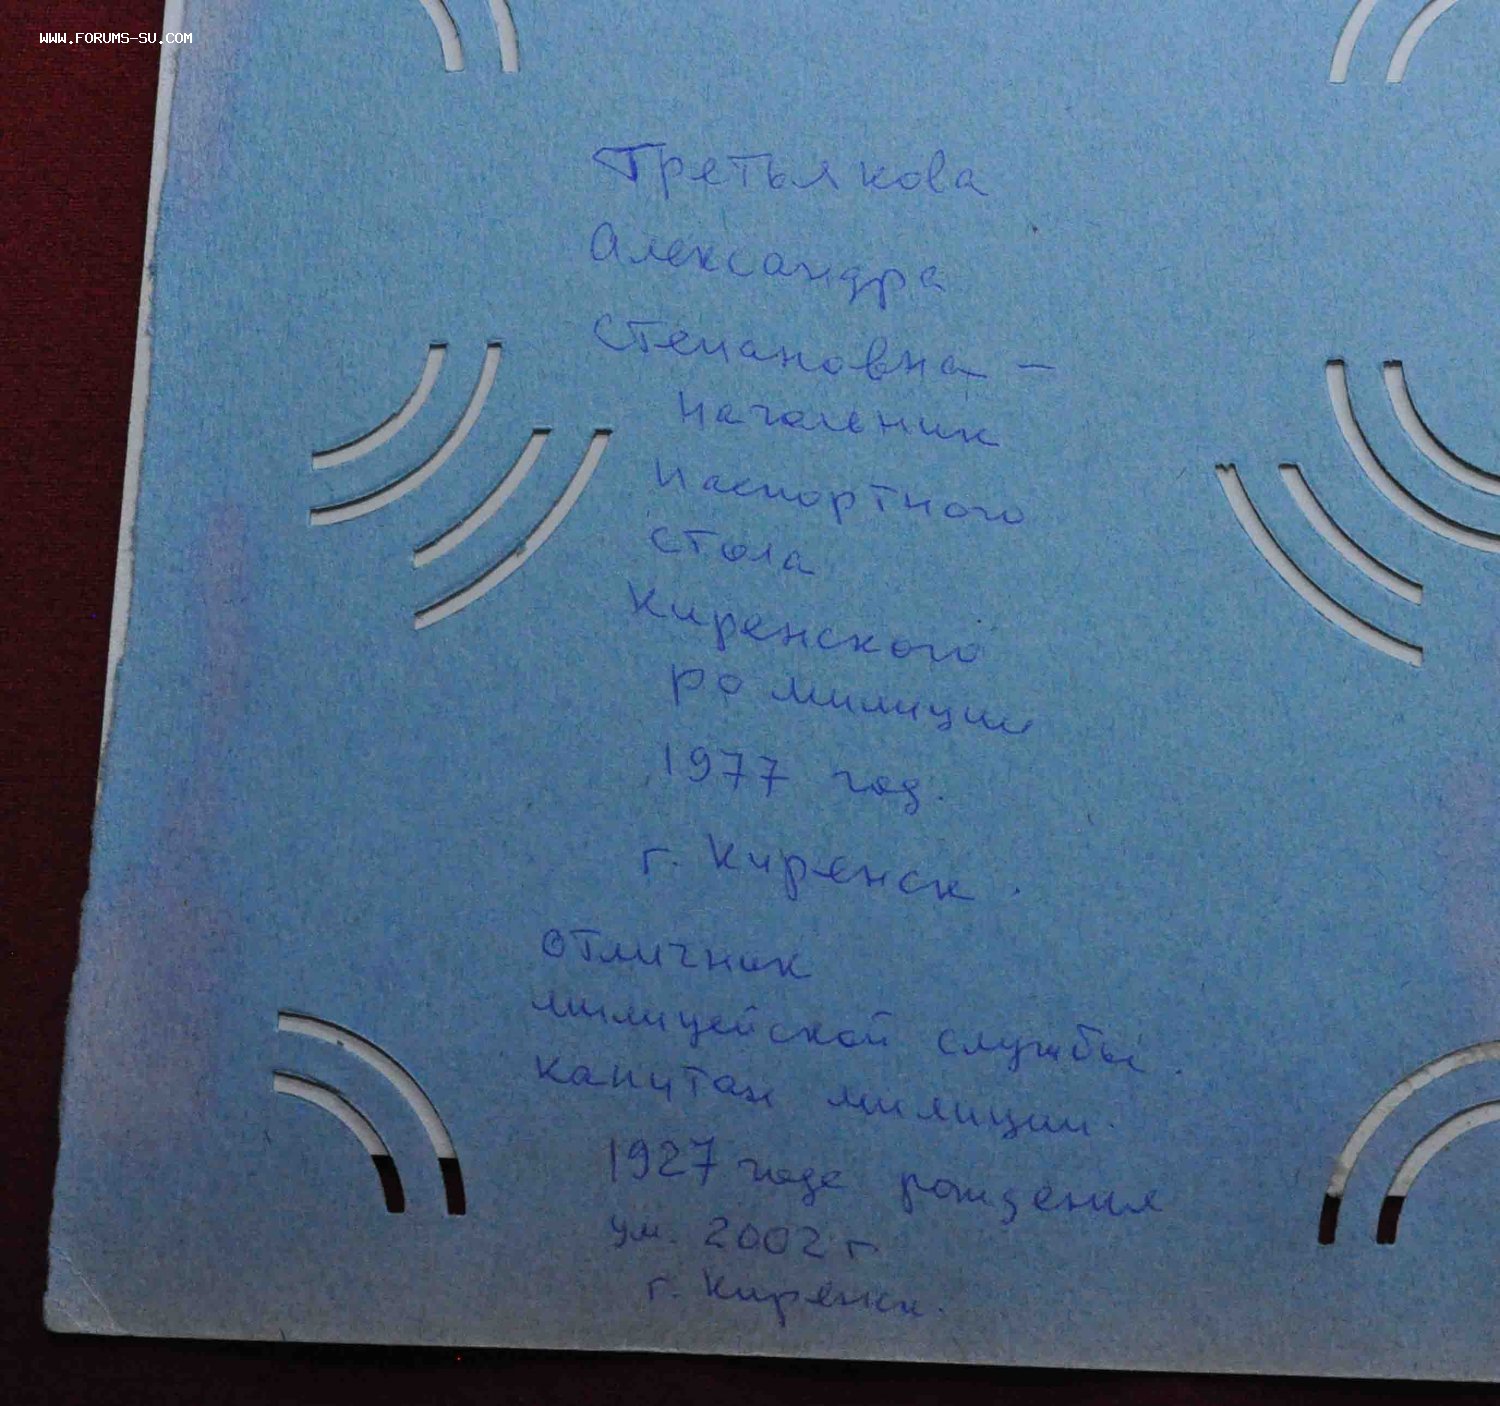 WWW.FORUMS-SU.COM
Третьякова
Александра
Степановна –
Начальник
Паспортного
стола
Киренского
РО милиции
1977 год.
г. Киренск.
Отличник
милицейской службы.
Капитан милиции.
1927 года рождения
ум. 2002 г
г. Киренск.